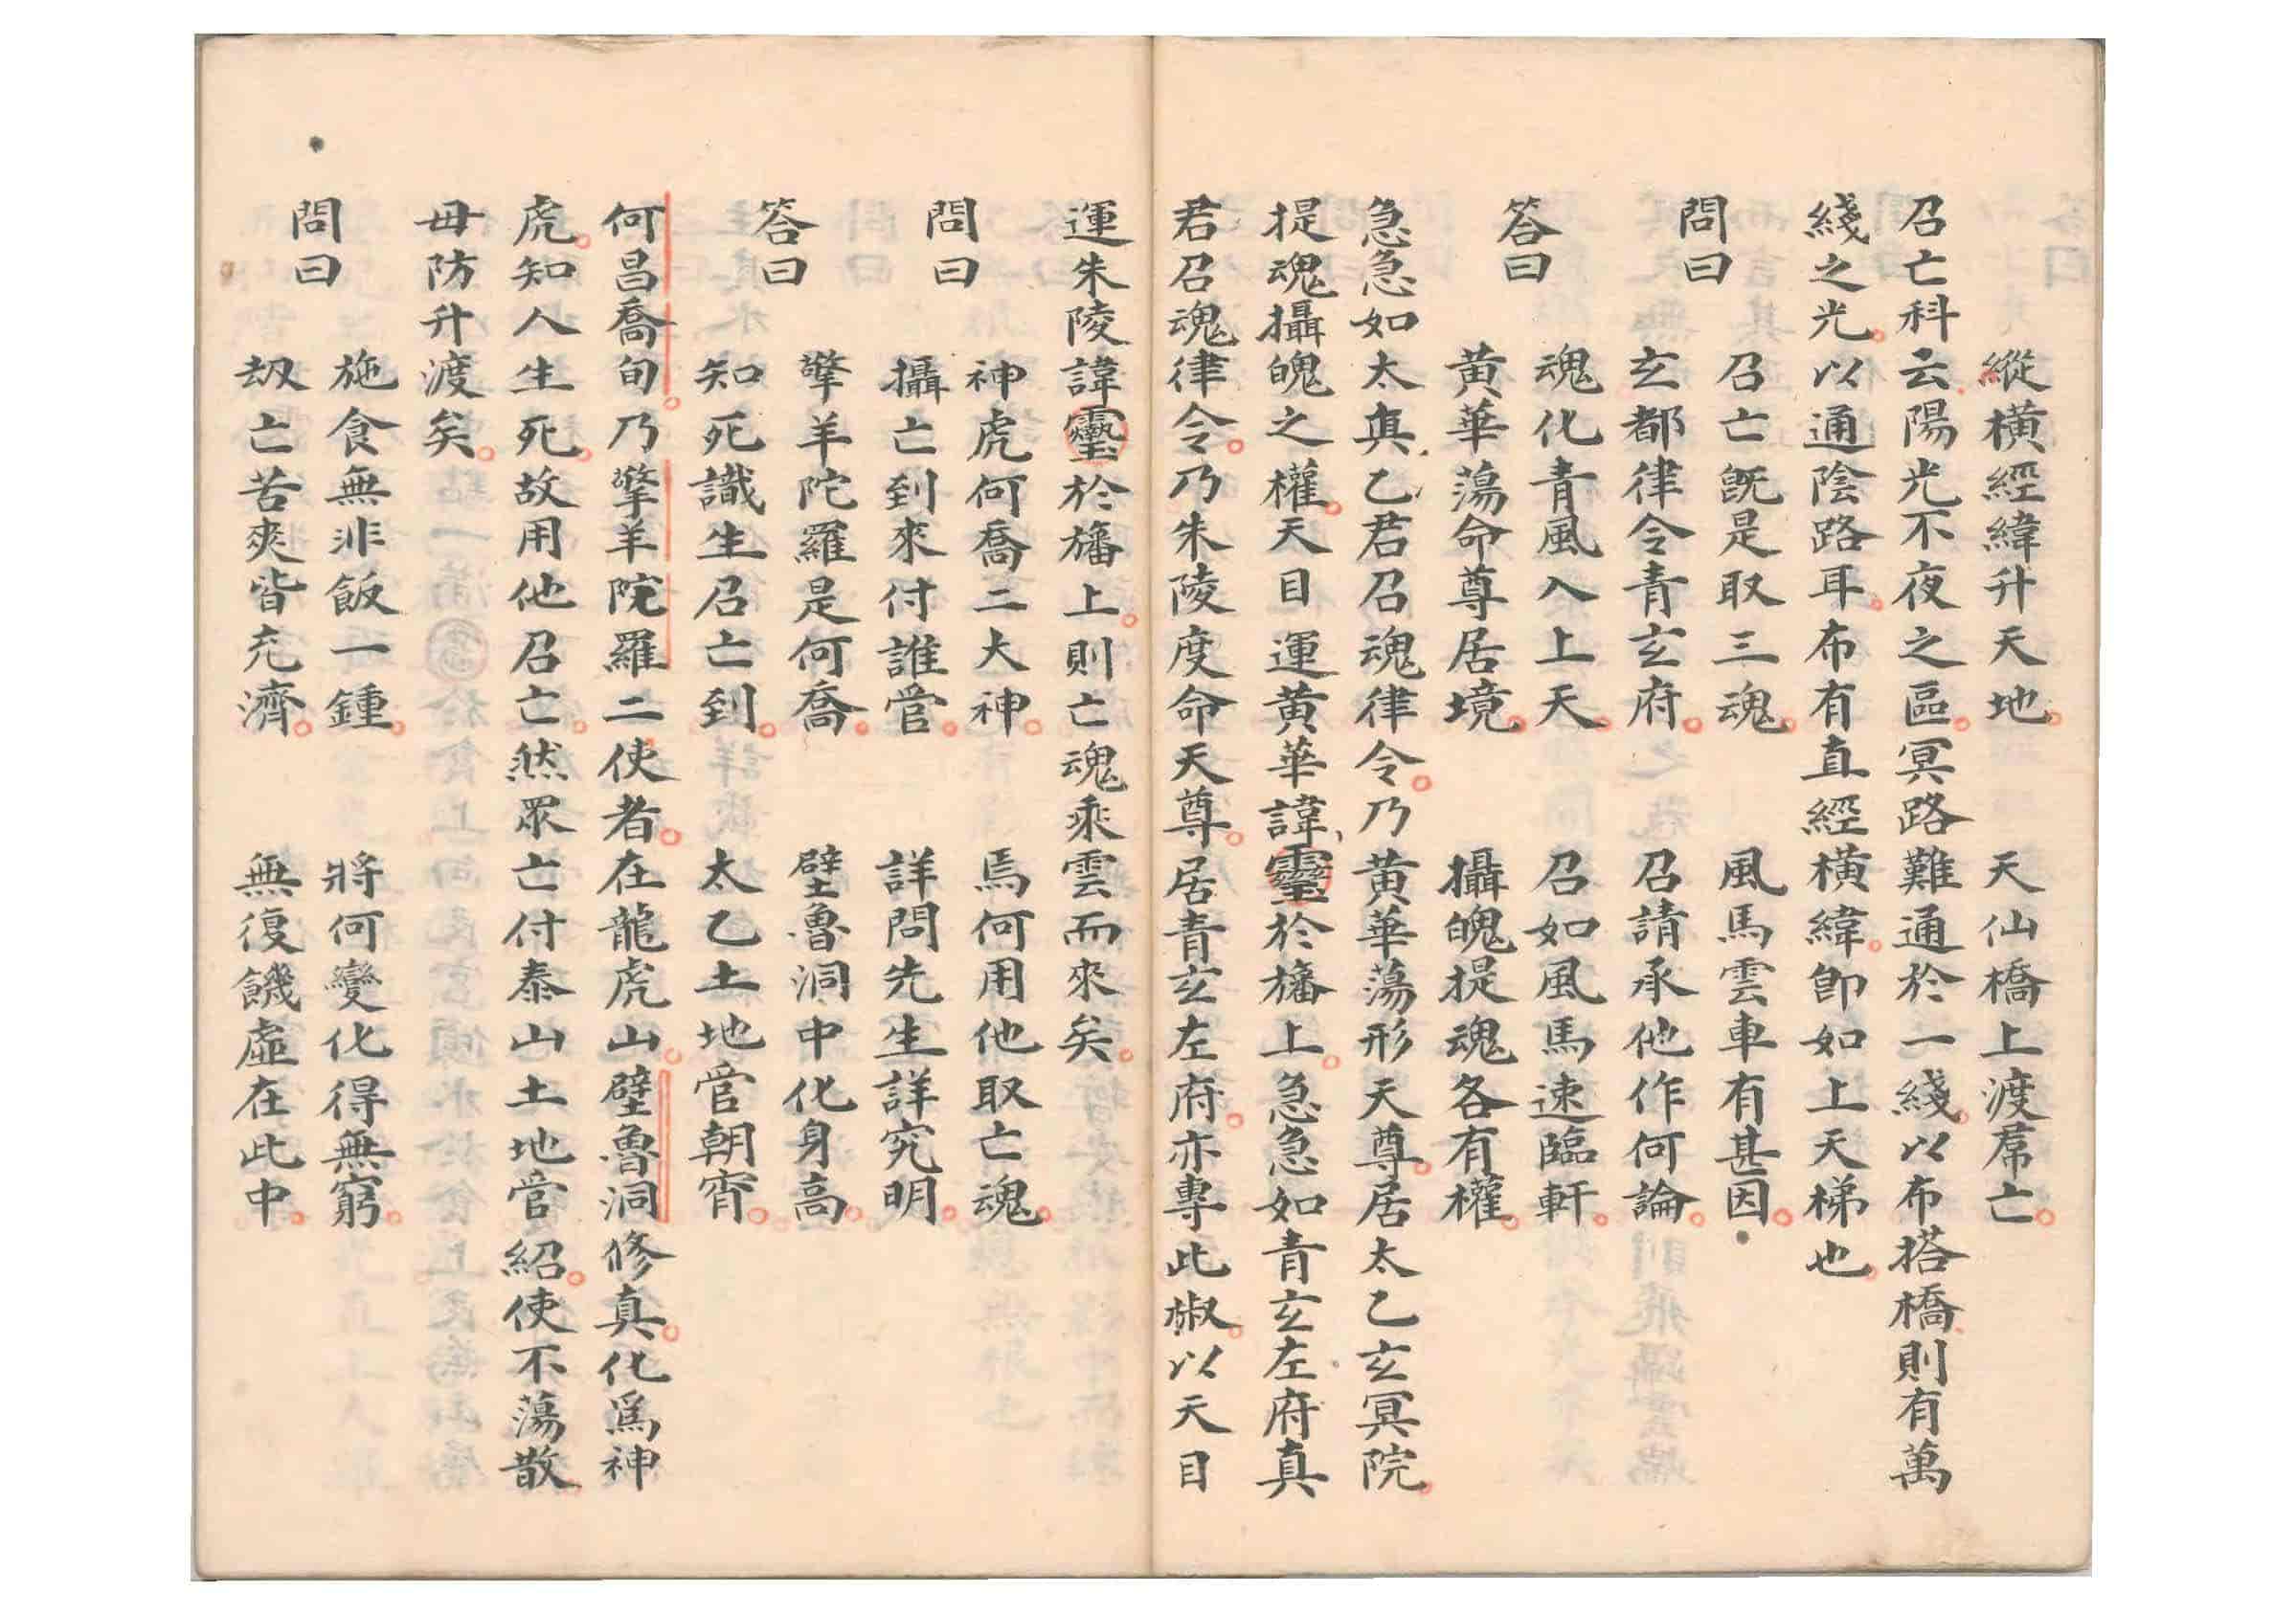 縱橫經緯升天地。天仙橋上渡席亡。
召亡科云陽光不夜之區。冥路難通於一綫。以布搭橋則有萬
綫之光。以通陰路耳。布有直經橫緯。即如上天梯也。
問曰
召亡旣是取三魂。風馬雲車有甚因。
玄都律令青玄府。召請承他作何論。
答曰
魂化青風入上天。召如風馬速臨軒。
黃華蕩命尊居境。攝魄提魂各有權。
急急如太真乙君召魂律令。乃黃華蕩形天尊。居太乙玄冥院。
提魂攝魄之權。天目運黃華諱於旛上。急急如青玄左府真
君召魂律令。乃朱陵度命天尊。居青玄左府。亦專此椒。以天目
運朱陵諱於旛上。則亡魂乘雲而來矣。
問曰
神虎何喬二大神。焉何用他取亡魂。
攝亡到來付誰管。詳問先生詳究明。
答曰
擎羊陀羅是何喬。壁魯洞中化身高。
知死識生召亡到。太乙土地管朝宵。
何昌喬旬。乃擎羊陀羅二使者。在龍虎山。壁魯洞修真。化爲神
虎。知人生死。故用他召亡。然眾亡付泰山土地管紹。使不蕩散
毋防升渡矣。
問曰
施食無非飯一鍾。將何變化得無窮。
刼亡苦爽皆充濟。無復饑虛在此中。